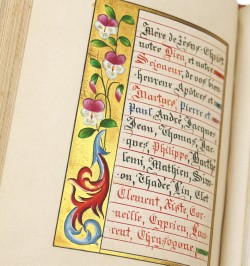 Mère de Jésus-Christ
notre Dieu et notre
Seigneur, de vos bien-
heureux Apôtres et
Martyrs, Pierre et
Paul, André, Jacques
Jean, Thomas, Jac-
ques, Philippe, Barthe
lemi, Mathieu, Sim-
on, Thadée, Lin, Clet
Clement, Xiste, Cor-
neille, Cyprien, Lau-
rent, Chrysogone,